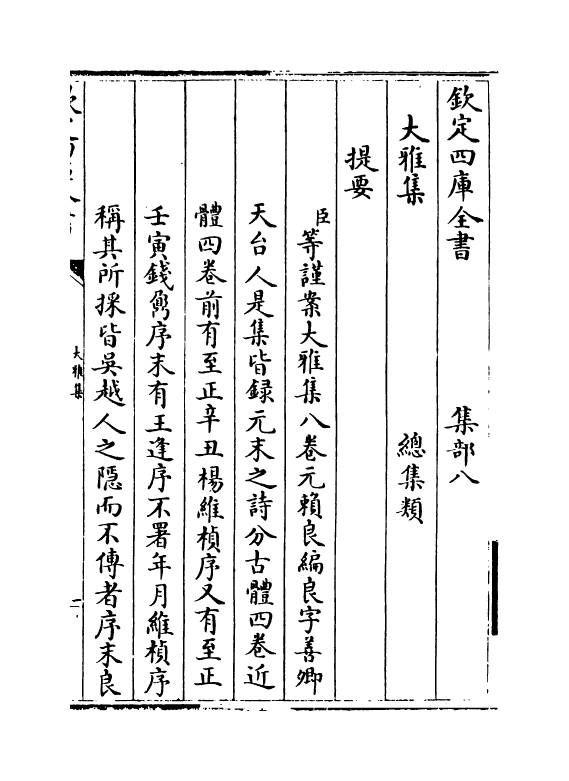 欽定四庫全書　　　集部八
大雅集　　　　總集類
提要
臣等謹案大雅集八卷元賴良編良字善卿
天台人是集皆録元末之詩分古體四卷近
體四卷前有至正辛丑楊維楨序又有至正
壬寅錢鼒序末有王逢序不署年月維楨序
稱其所採皆吳越人之隱而不傳者序末良
大雅集